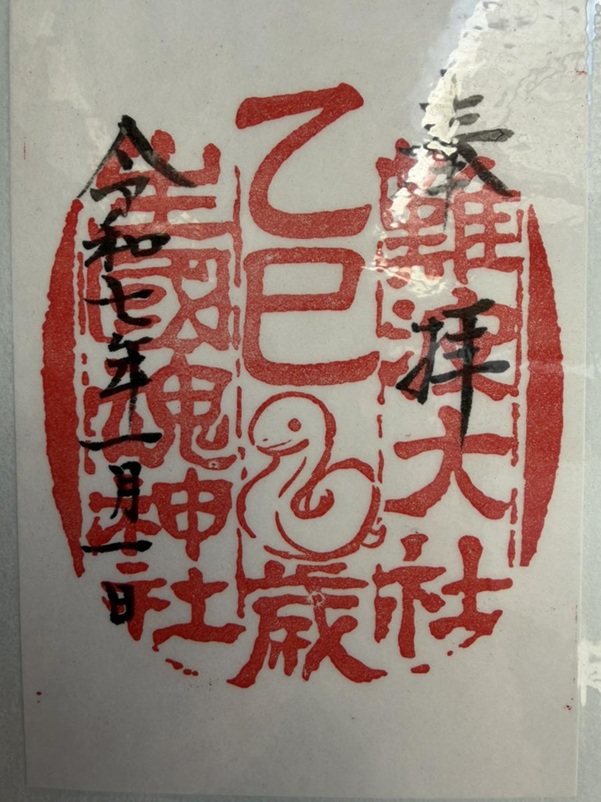 奉拝
難波大社
乙巳歳
生國魂神社
令和七年一月一日